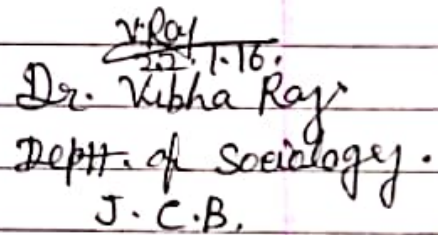 V. Ray
22.1.16.
Dr. Vibha Ray
Deptt. of Sociology.
J. C. B.